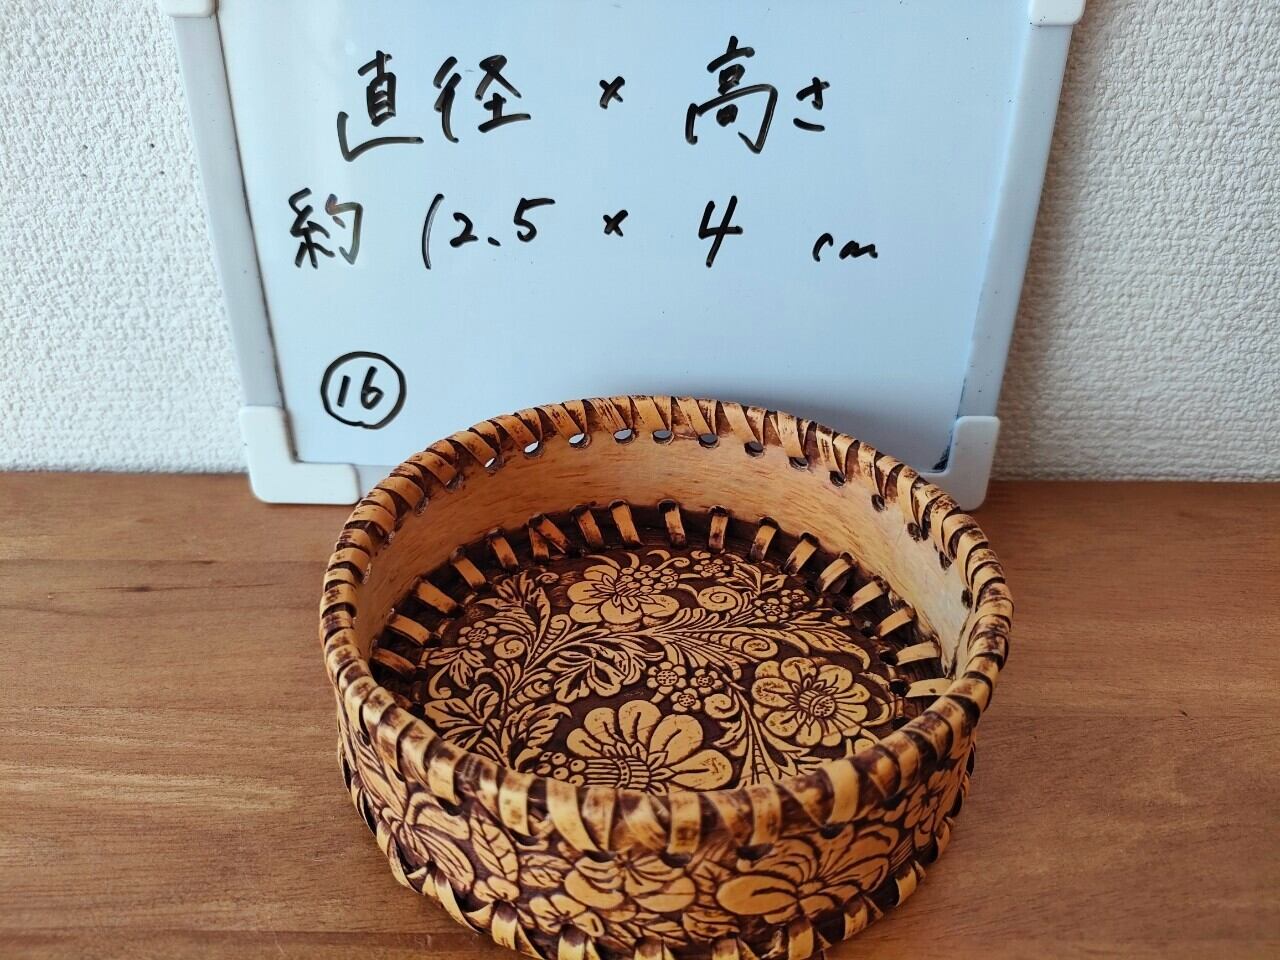 直径 × 高さ
約 12.5 × 4 cm
⑯